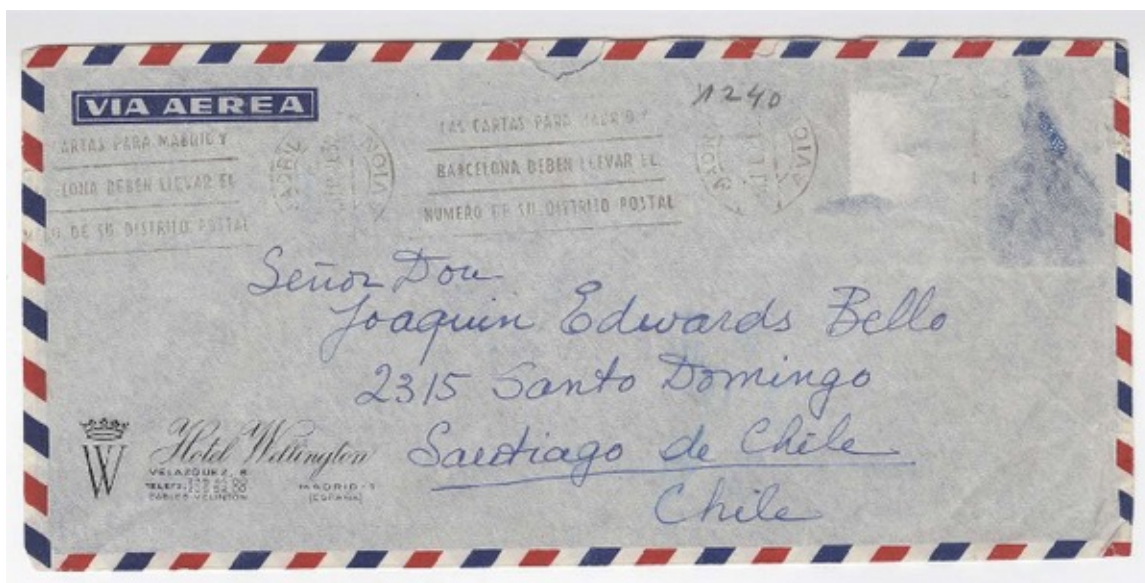 VIA AEREA
1240
CARTAS PARA MADRID Y
LONA DEBEN LLEVAR EL
DE SU DISTRITO POSTAL
LAS CARTAS PARA MADRID Y
BARCELONA DEBEN LLEVAR EL
NUMERO DE SU DISTRITO POSTAL
Señor Don
Joaquin Edwards Bello
2315 Santo Domingo
Santiago de Chile
Chile
W
Hotel Wellington
VELAZQUEZ, 8
MADRID-1
(ESPAÑA)
CABLES VELINTON